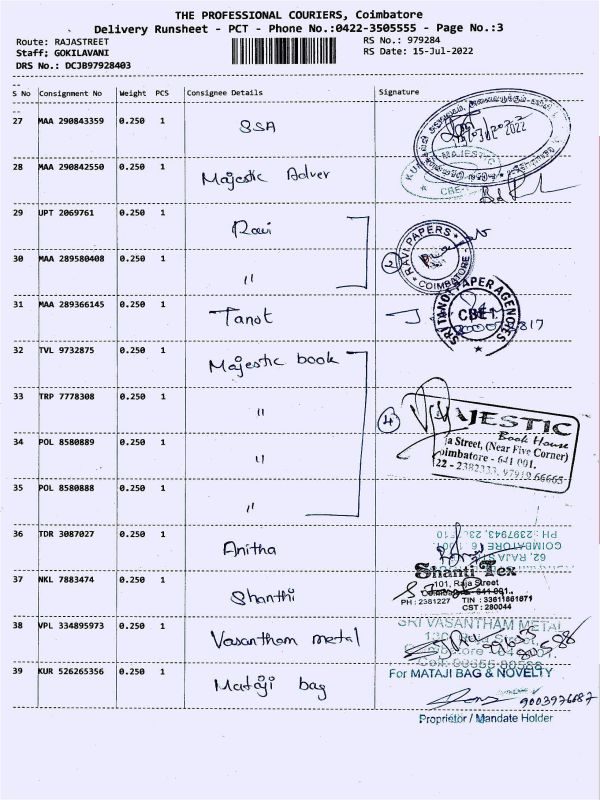 THE PROFESSIONAL COURIERS, Coimbatore
Delivery Runsheet - PCT - Phone No.:0422-3505555 - Page No.:3
Route: RAJASTREET RS No.: 979284
Staff: GOKILAVANI RS Date: 15-Jul-2022
DRS No.: DCJB97928403
S No Consignment No Weight PCS Consignee Details Signature
27 MAA 290843359 0.250 1 SSA
MAJESTIC
CBE-1
28 MAA 290842550 0.250 1 Majestic Adver
29 UPT 2069761 0.250 1 Ravi
RAVI PAPERS
COIMBATORE
2
30 MAA 289580408 0.250 1 "
31 MAA 289366145 0.250 1 Tanot
SRI TANOT PAPER AGENCIES
CBE-1.
32 TVL 9732875 0.250 1 Majestic book
33 TRP 7778308 0.250 1 "
4
MAJESTIC
Book House
a Street, (Near Five Corner)
oimbatore - 641 001.
22 - 2382333, 97919 66665
34 POL 8580889 0.250 1 "
35 POL 8580888 0.250 1 "
36 TDR 3087027 0.250 1 Anitha
62, RAJA
COIMBATORE
PH : 2397943,
37 NKL 7883474 0.250 1 Shanthi
Shanti Tex
101, Raja Street
Coimbatore - 641 001.
PH : 2381227 TIN : 33611661671
CST : 280044
38 VPL 334895973 0.250 1 Vasantham metal
SRI VASANTHAM METAL
Raja Street,
39 KUR 526265356 0.250 1 Mataji bag
For MATAJI BAG & NOVELTY
9003976687
Proprietor / Mandate Holder